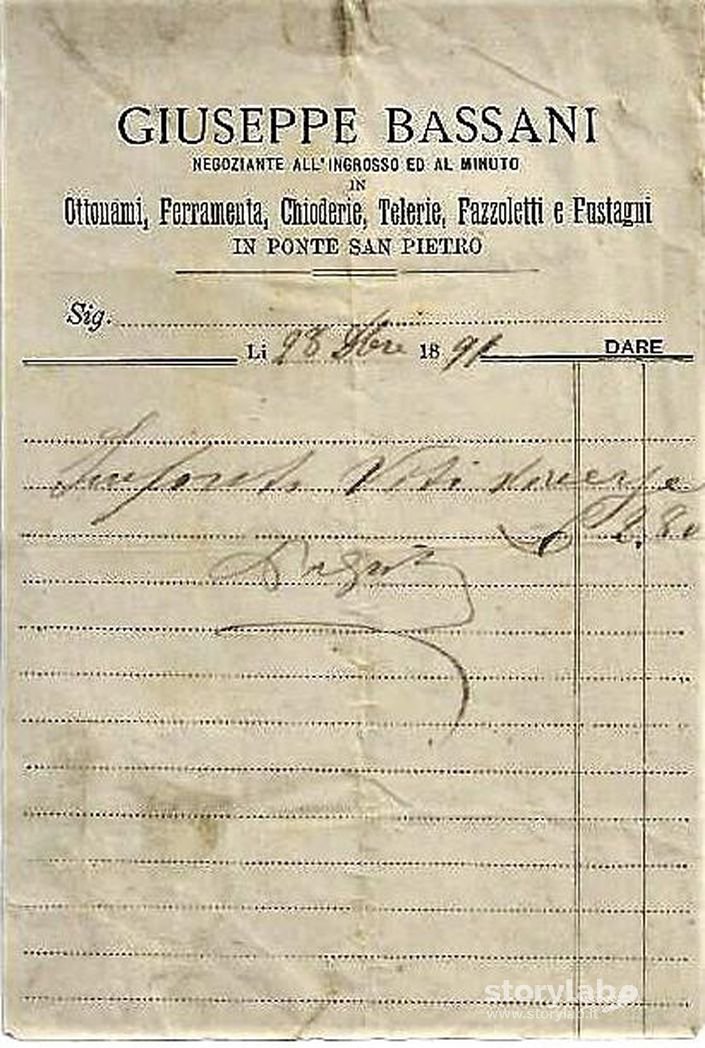 GIUSEPPE BASSANI
NEGOZIANTE ALL'INGROSSO ED AL MINUTO
IN
Ottonami, Ferramenta, Chioderie, Telerie, Fazzoletti e Fustagni
IN PONTE SAN PIETRO
Sig.
Li 28 9bre 1891 DARE
Viti diverse
£ 2.80
storylab
www.storylab.it